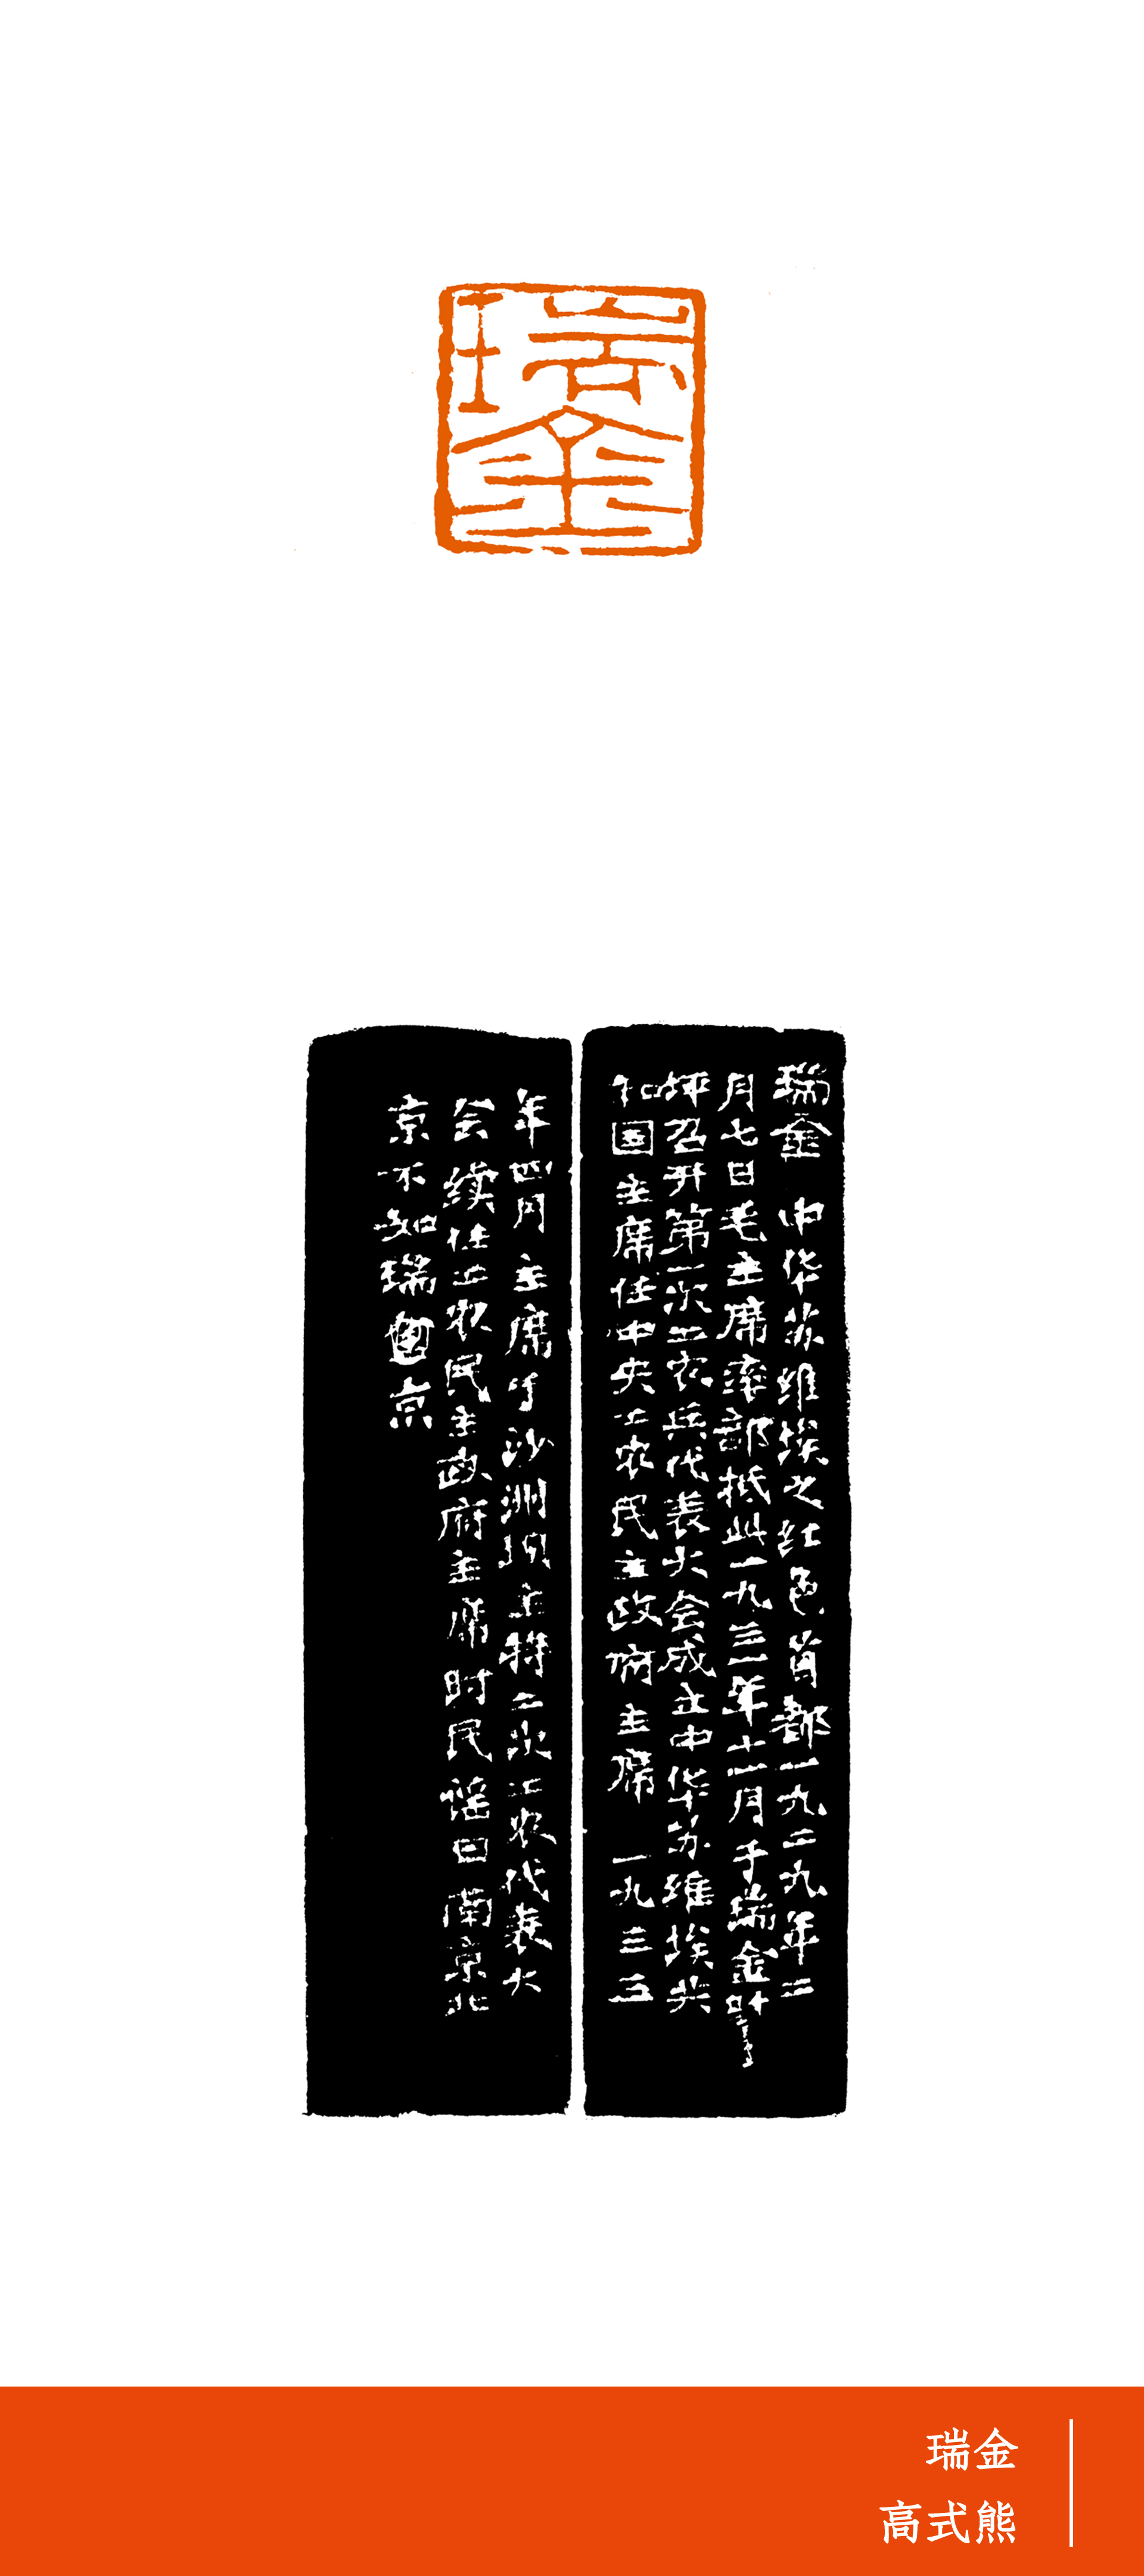 瑞金
瑞金 中华苏维埃之红色首都一九二九年二
月七日毛主席率部抵此一九三一年十一月于瑞金叶
坪召开第一次工农兵代表大会成立中华苏维埃共
和国主席任中央工农民主政府主席 一九三五
年四月主席于沙洲坝主持二次工农代表大
会续任工农民主政府主席时民谣曰南京北
京不如瑞京
瑞金
高式熊